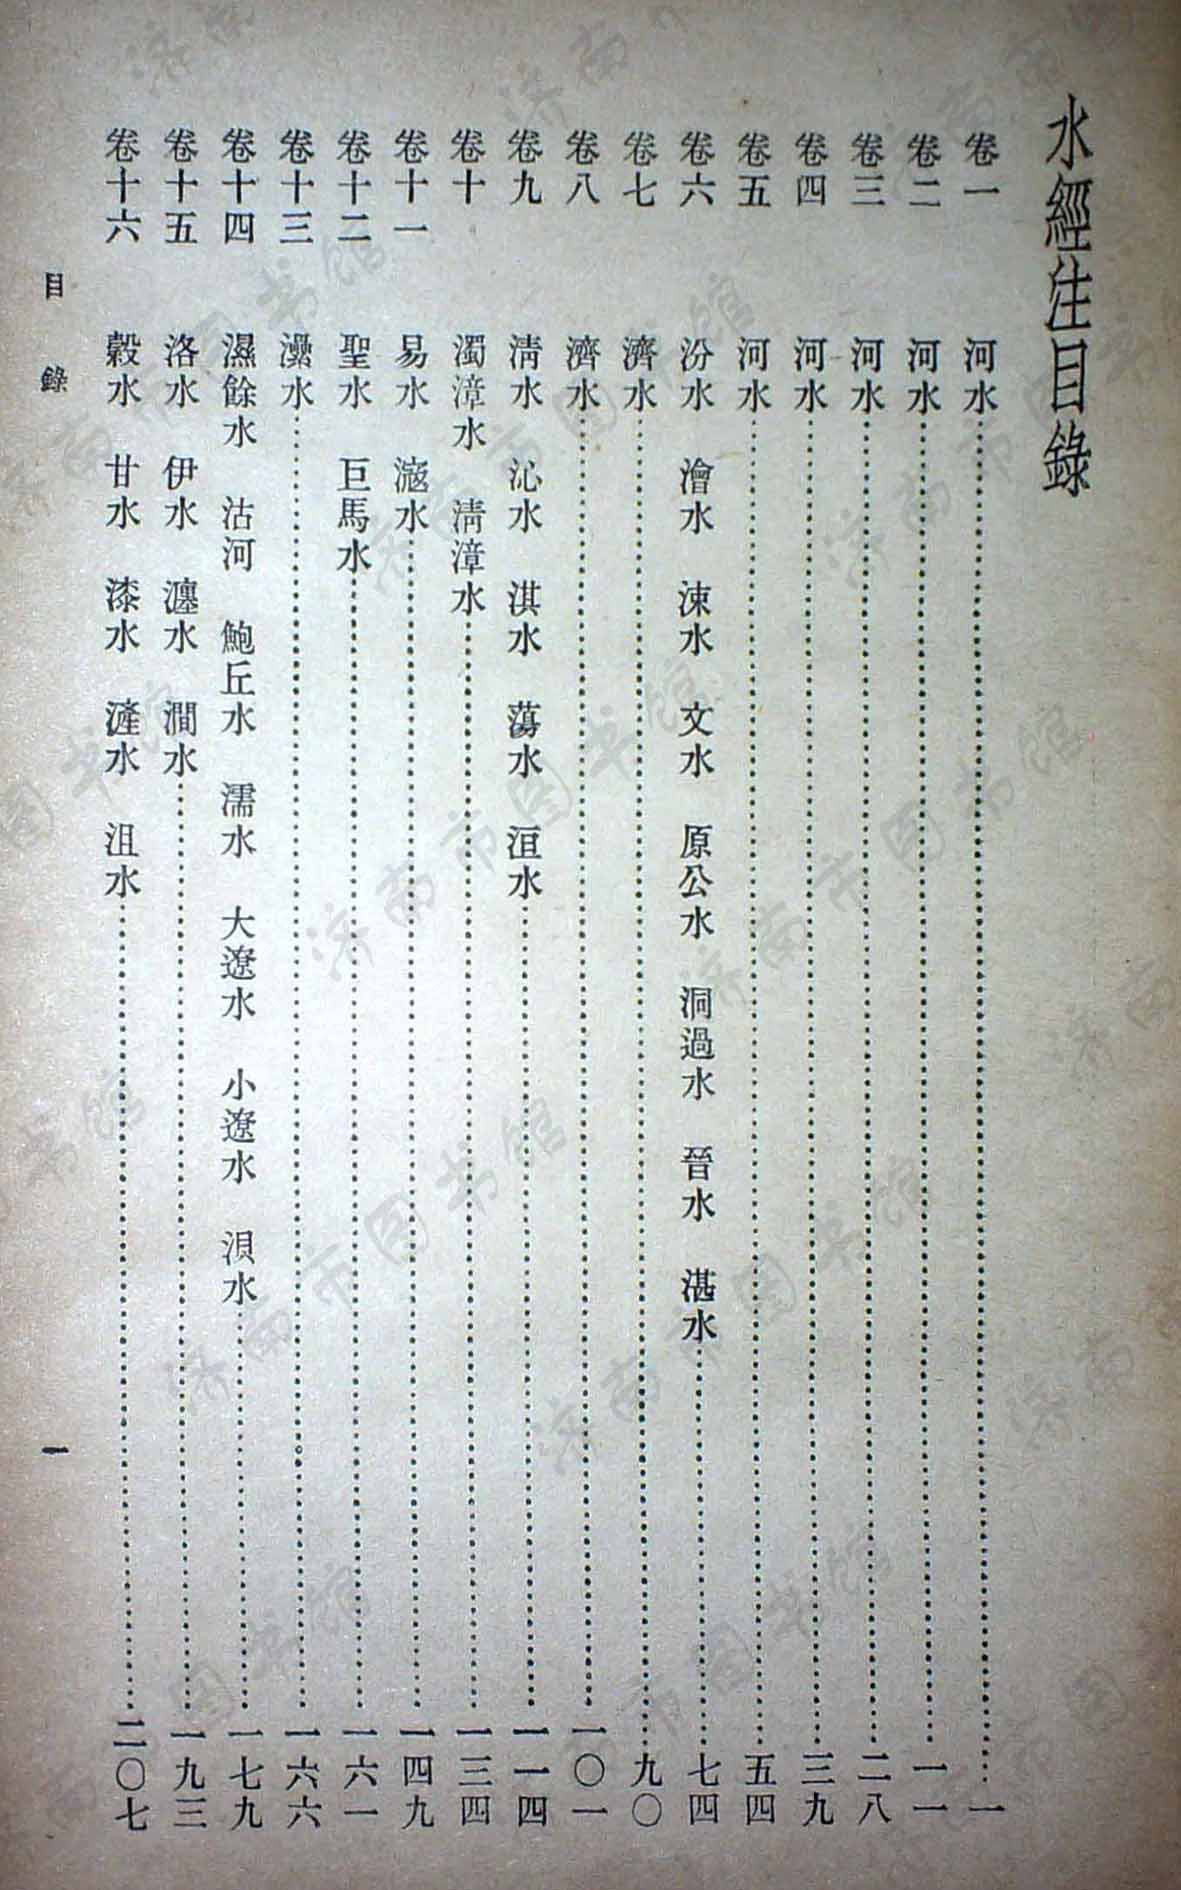 水經注目錄
卷一 河水……一
卷二 河水……一一
卷三 河水……二八
卷四 河水……三九
卷五 河水……五四
卷六 汾水 澮水 涑水 文水 原公水 洞過水 晉水 湛水……七四
卷七 濟水……九〇
卷八 濟水……一〇一
卷九 淸水 沁水 淇水 蕩水 洹水……一一四
卷十 濁漳水 淸漳水……一三四
卷十一 易水 滱水……一四九
卷十二 聖水 巨馬水……一六一
卷十三 㶟水……一六六
卷十四 濕餘水 沽河 鮑丘水 濡水 大遼水 小遼水 浿水……一七九
卷十五 洛水 伊水 瀍水 澗水……一九三
卷十六 穀水 甘水 漆水 滻水 沮水……二〇七
目錄
一
济南市图书馆